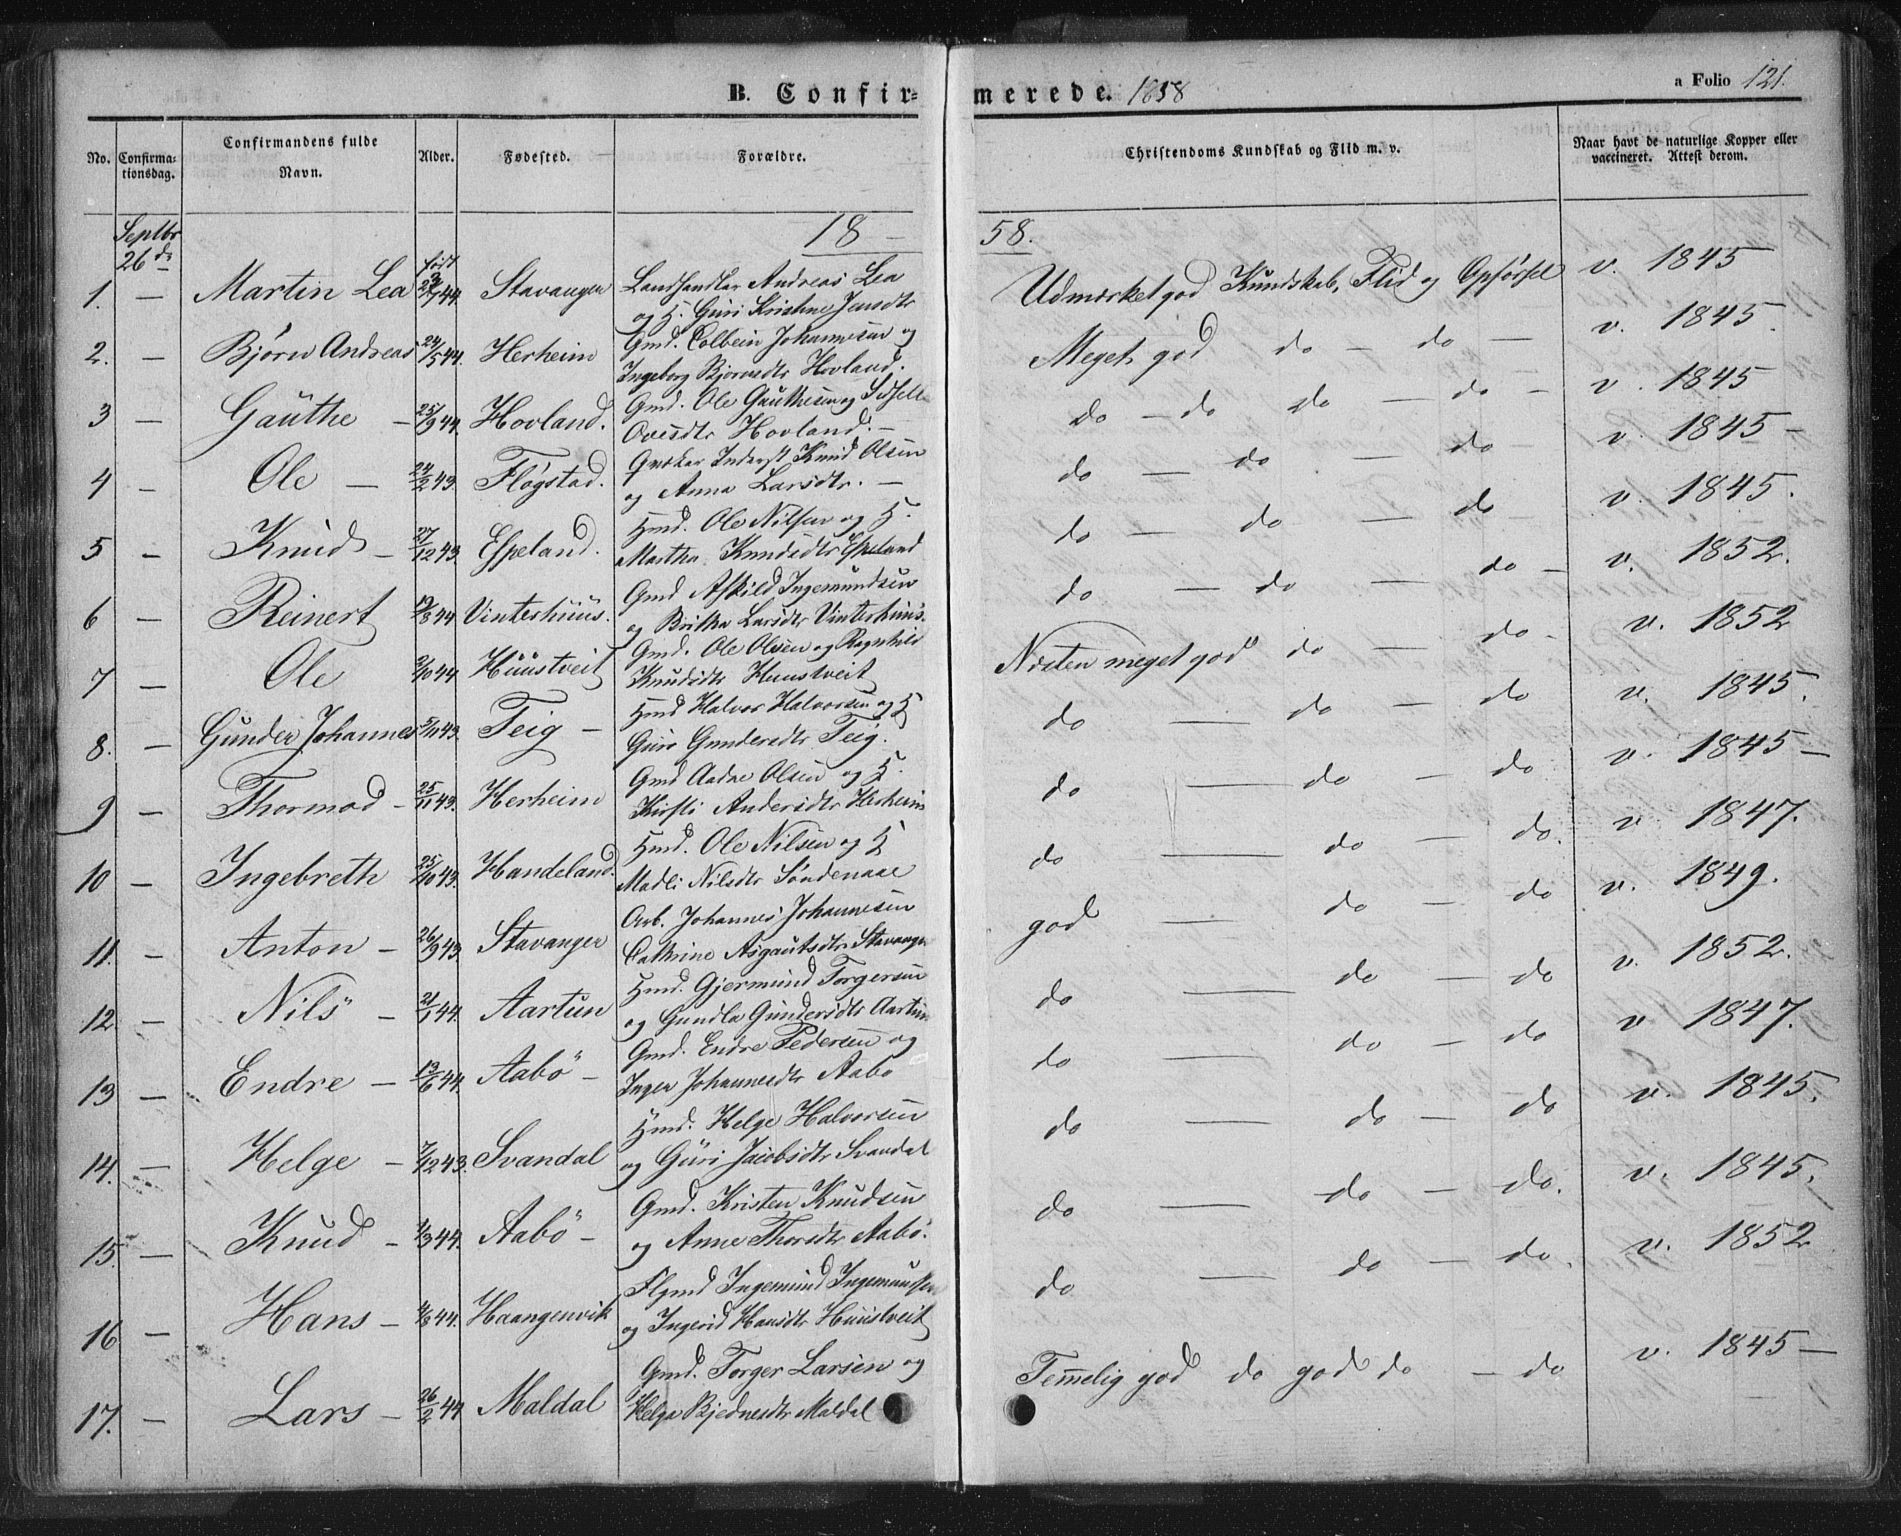 B. Confirmerede. 1858
a Folio 121.
No. Confirmationsdag. Confirmandens fulde Navn. Alder. Fødested. Forældre. Christendoms Kundskab og Flid m. v. Naar havt de naturlige Kopper eller vaccineret. Attest derom.
Septbr 18 — 58.
26de født
1. — Martin Lea 44. Stavanger Landhandler Andreas Lea Udmærket god Kundskab, Flid og Opførsel v. 1845
og H. Guri Kristine Jensdtr
2. — Bjørn Andreas 24/5 44. Herheim Gmd. Colbein Johannesen og Meget god do — do — v. 1845.
Ingeborg Bjørnsdtr Hovland.
3 — Gauthe — 25/9 44. Hovland. Gmd. Ole Gauthesen og Sidselle do — do do — do — v. 1845
Ovesdtr Hovland. —
4 — Ole — 24/2 43. Fløgstad. Inderst Knud Olsen do — do — do v. 1845 —
og Anna Larsdtr. —
5 — Knud — 27/12 43. Espeland. Hmd. Ole Nilsen og H. do — do — do v. 1845.
Martha Knudsdtr Espeland
6 — Reinert 19/8 44 Vinterhuus. Gmd Askild Ingemundsen do — do — do — v. 1852.
og Britha Larsdtr Vinterhuus.
7 — Ole 2/10 44 Huustveit Gmd. Ole Olsen og Ragnhild Næsten meget god do — do — v. 1852
Knudsdtr Huustveit
8. — Gunder Johannes 5/11 43. Teig — Hmd Halvor Halvorsen og H do — do — do v. 1845.
Guro Gundersdtr Teig.
9 — Thormod — 25/11 43. Herheim Gmd Aadne Olsen og H. do — do — do v. 1845 —
Kirsti Andersdtr Herheim
10 — Ingebreth 25/10 43. Handeland. Hmd. Ole Nilsen og H do — do — do. v 1847.
Madli Nilsdtr Søndenaae
11. — Anton — 26/9 43. Stavanger Arb. Johannes Johannesen god — do — do v. 1849.
Cathrine Asgautsdtr Stavanger
12. — Nils — 21/1 44. Aartun Hmd. Gjermund Torgersen do — do — do v. 1852.
og Gundla Gundersdtr Aartun
13 — Endre — 13/6 44. Aabø — Gmd. Endre Pedersen og do — do — do v 1847.
Inger Johannesdtr Aabø
14. — Helge — 7/12 43. Svandal Hmd. Helge Halvorsen do — do — do v. 1845.
og Guri Jacobsdtr Svandal
15. — Knud — 44. Aabø — Gmd. Kristen Knudsen do — do — do. v. 1845.
og Anne Thorsdtr Aabø.
16 — Hans — 44. Haangenvik Ingemund Ingemundsen do — do — do. v. 1852
og Ingerid Hansdtr Huustveit
17. — Lars — 26/2 44 Maldal Gmd. Torger Larsen og Temmelig god do god do — do v. 1845 —
Helga Bjednesdtr Maldal